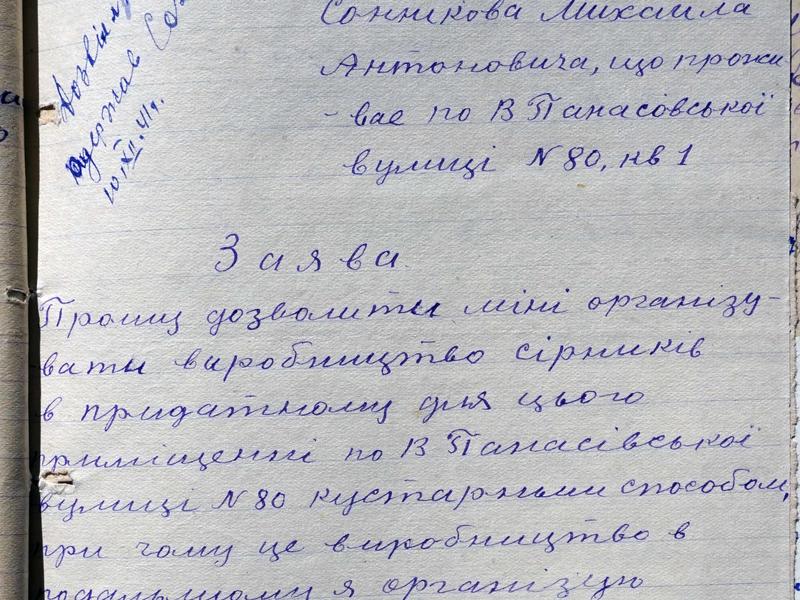 Дозвіл
одержав
10.XII.41р.
Соннікова Михаила
Антоновича, що прожи-
-вае по В Панасовської
вулиці N 80, кв 1
Заява
Прошу дозволити міні організу-
вати виробництво сірників
в придатному для цього
приміщенні по В Панасівської
вулиці N 80 кустарным способом,
при чому це виробництво в
подальшому я організую